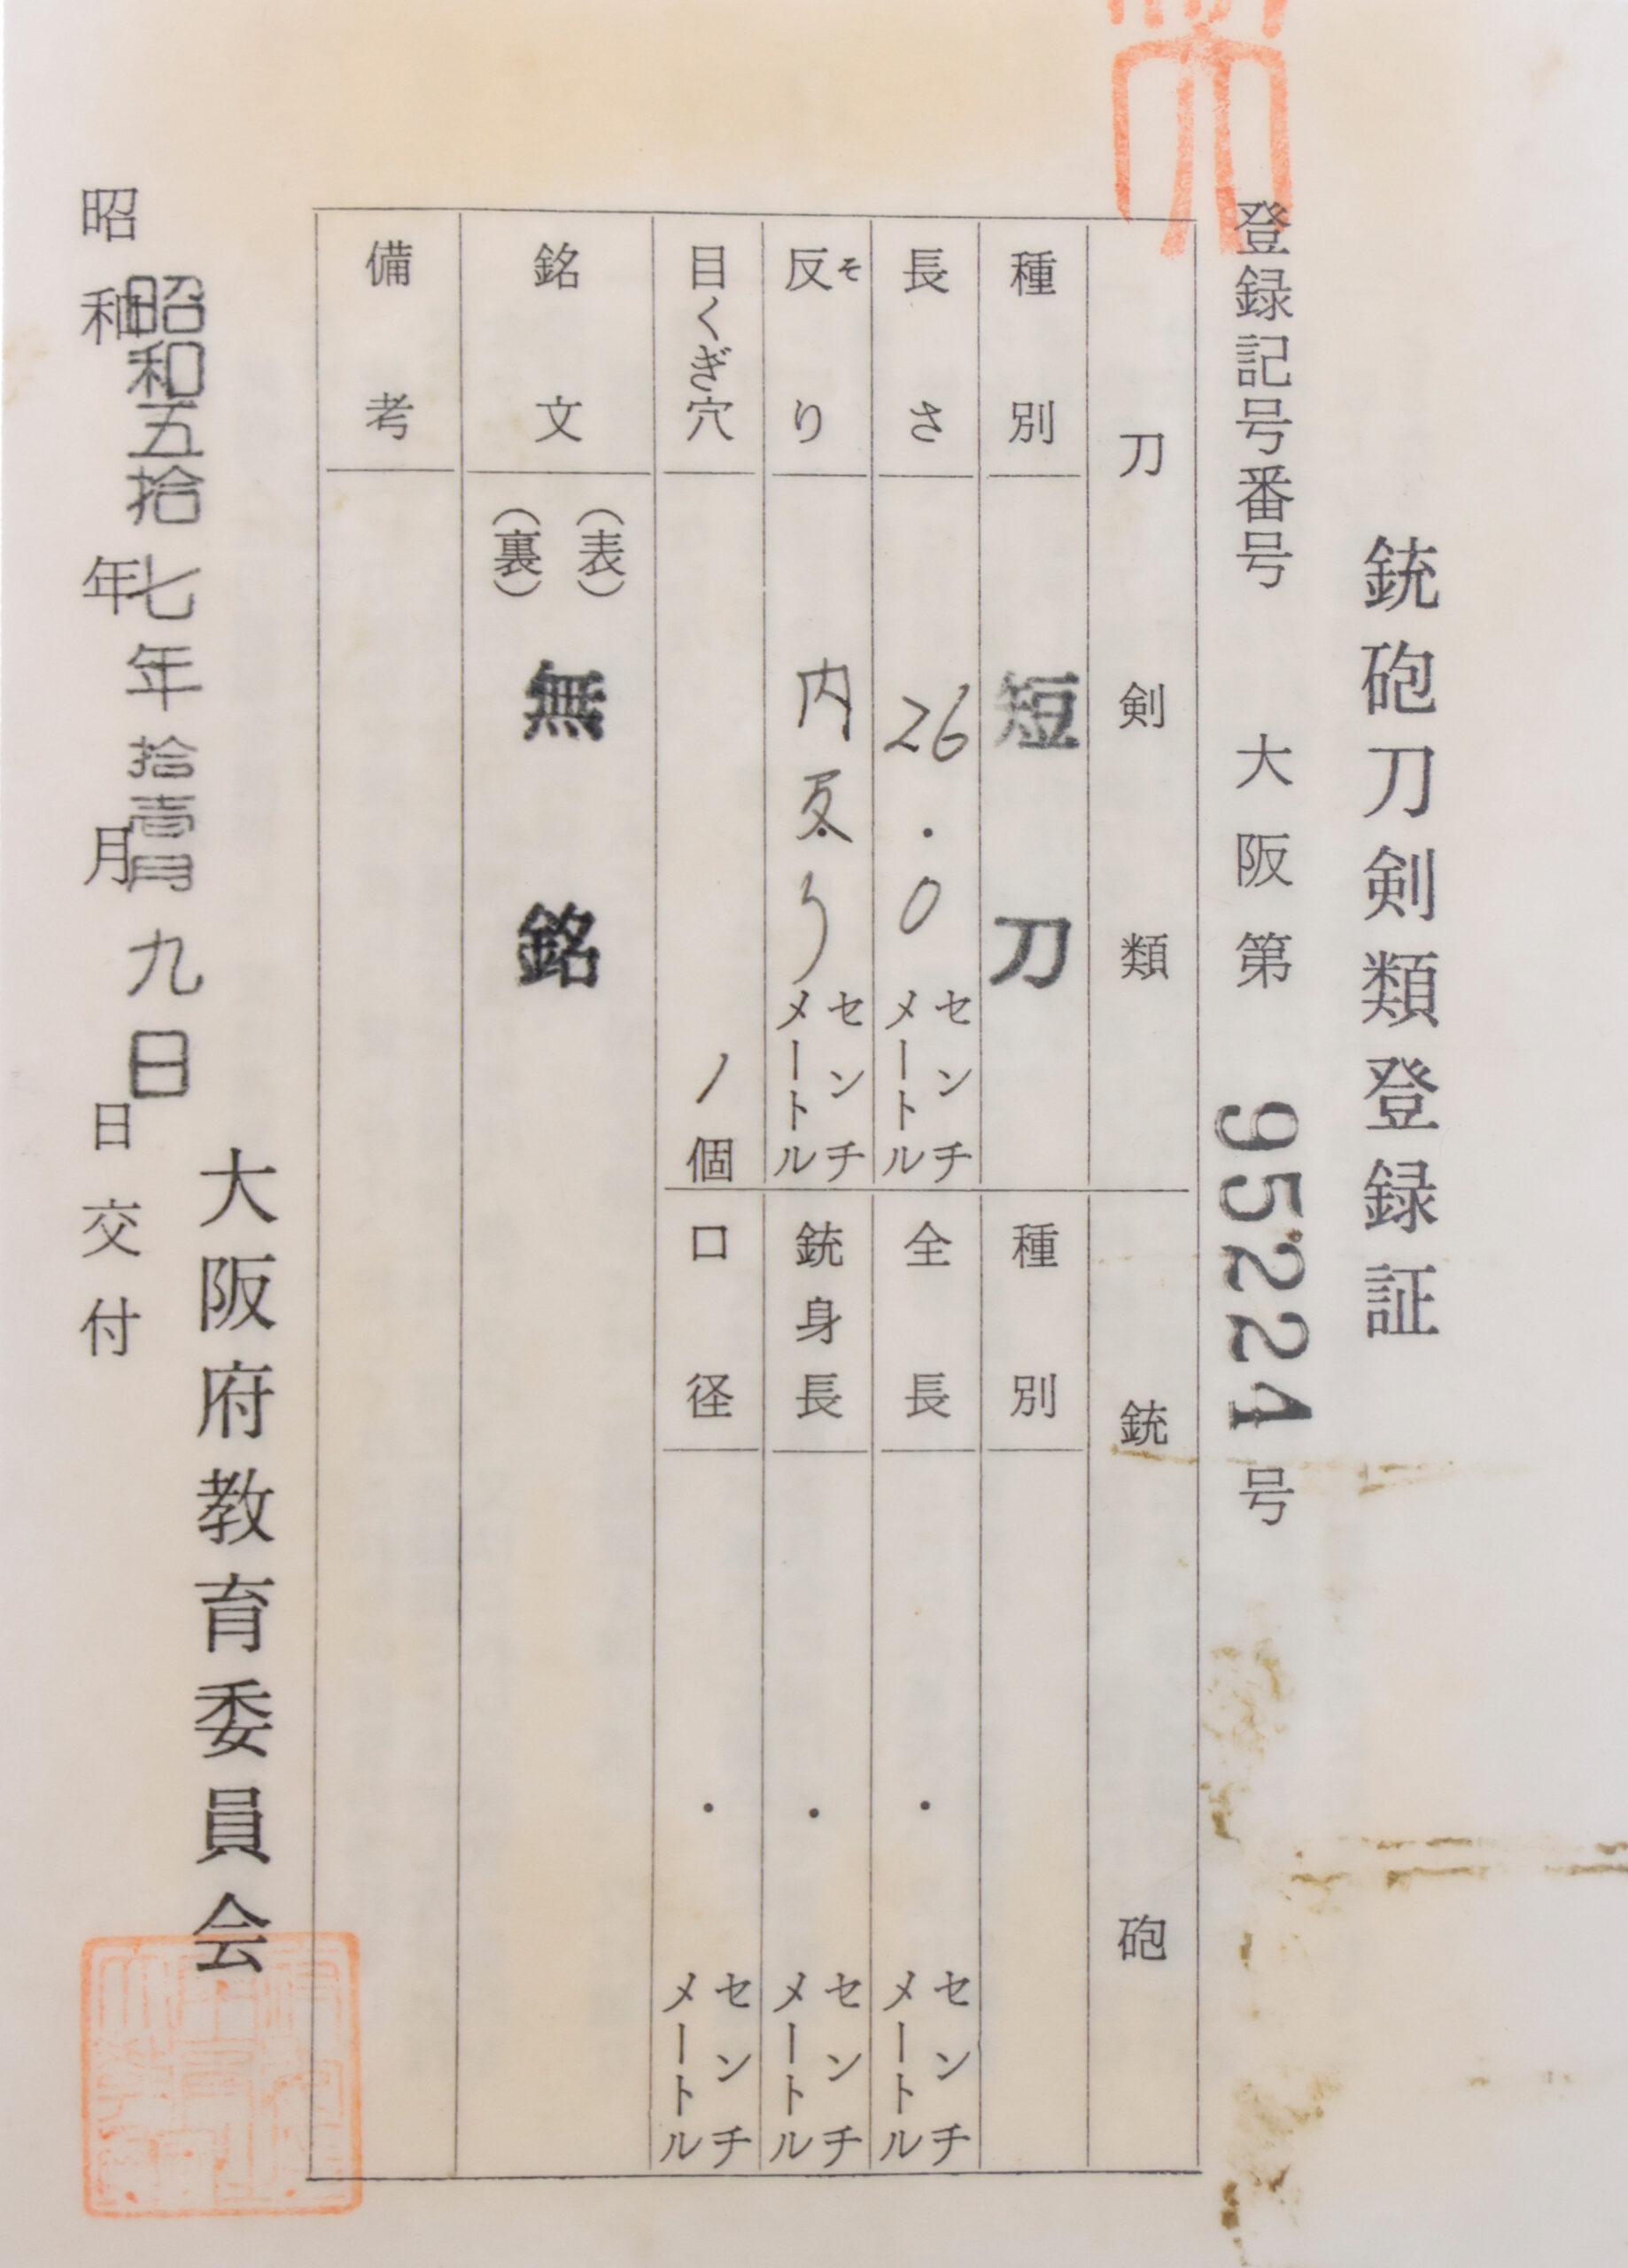 銃砲刀剣類登録証
登録記号番号 大阪第 95224 号
刀剣類
種別 短刀
長さ 26.0 センチメートル
反り そ 内反り センチメートル
目くぎ穴 1 個
銃砲
種別
全長 . センチメートル
銃身長 . センチメートル
口径 . センチメートル
銘文 (表) (裏) 無銘
備考
大阪府教育委員会
昭和五拾七年拾壹月九日
昭和 年 月 日交付